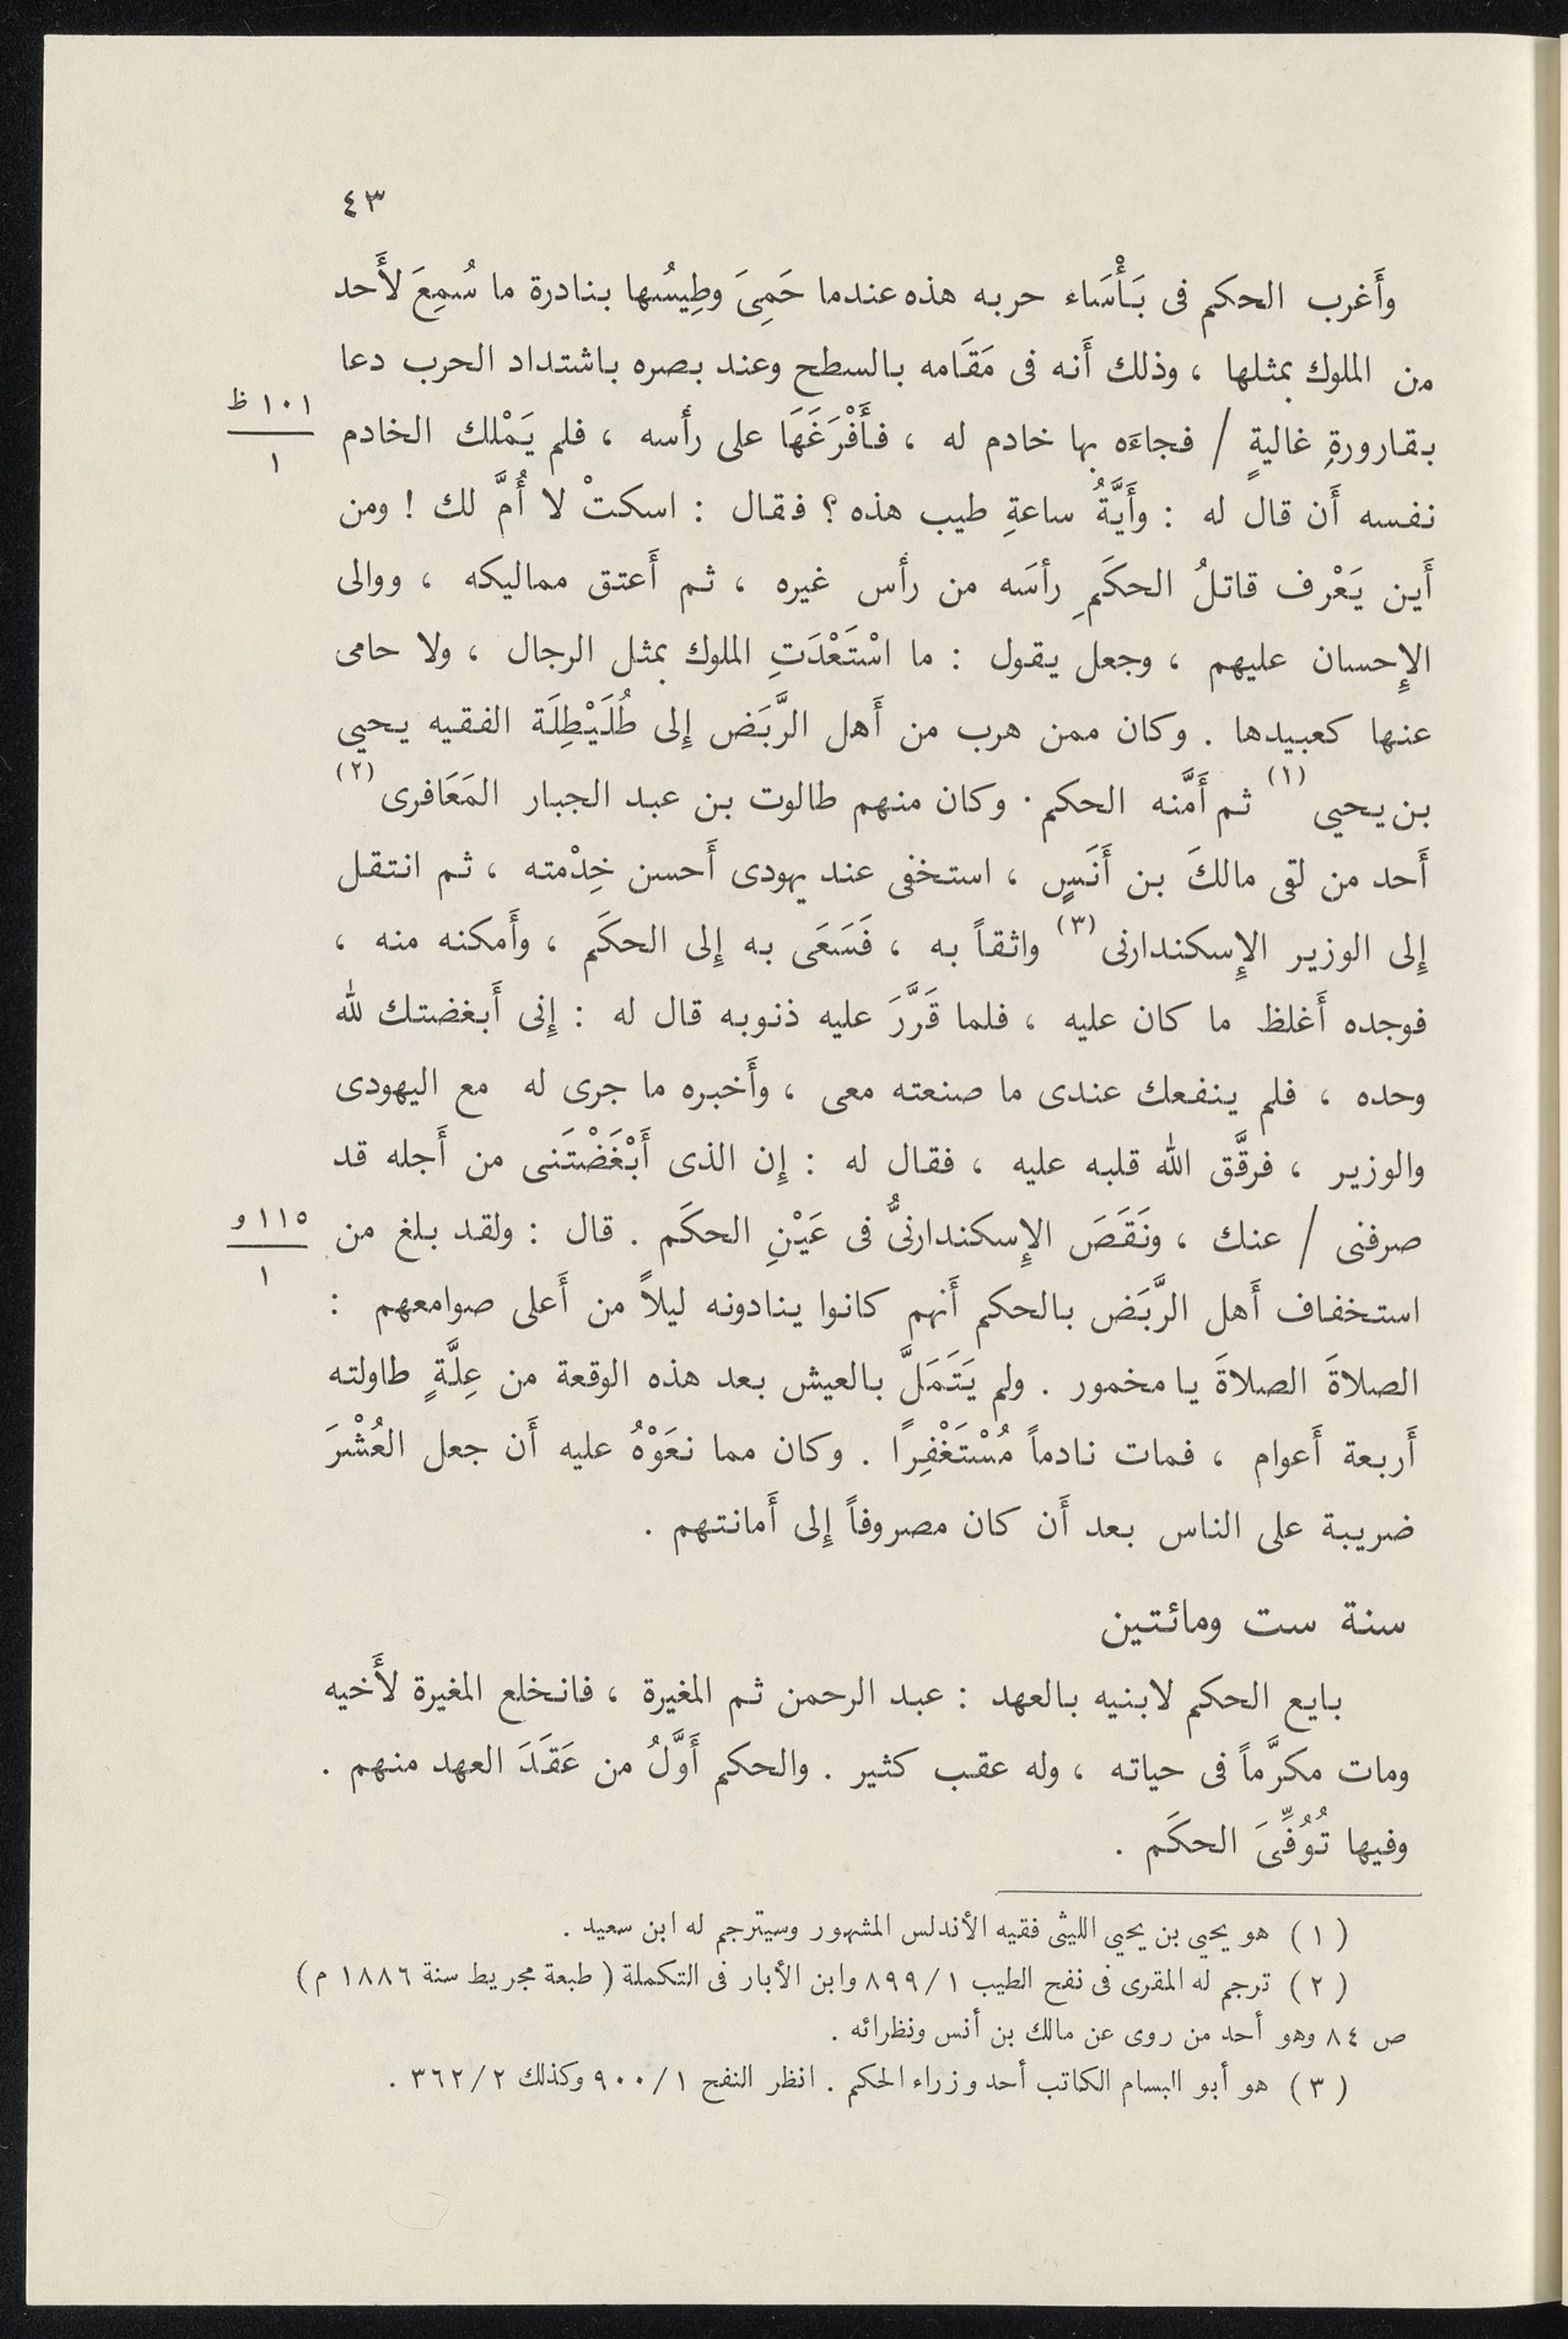 ٤٣
وأَغرب الحكم فى بَأْسَاء حربه هذه عندما حَمِىَ وطِيسُها بنادرة ما سُمِعَ لأَحد
من الملوك بمثلها ، وذلك أَنه فى مَقَامه بالسطح وعند بصره باشتداد الحرب دعا
١٠١ ظ
١
بقارورةِ غاليةٍ / فجاءَه بها خادم له ، فأَفْرَغَهَا على رأسه ، فلم يَمْلك الخادم
نفسه أَن قال له : وأَيَّةُ ساعةِ طيب هذه ؟ فقال : اسكتْ لا أُمَّ لك ! ومن
أَين يَعْرف قاتلُ الحكَمِ رأسَه من رأس غيره ، ثم أَعتق مماليكه ، ووالى
الإِحسان عليهم ، وجعل يقول : ما اسْتَعْدَتِ الملوك بمثل الرجال ، ولا حامى
عنها كعبيدها . وكان ممن هرب من أَهل الرَّبَض إِلى طُلَيْطِلَة الفقيه يحيى
بن يحيى (١) ثم أَمَّنه الحكم . وكان منهم طالوت بن عبد الجبار المَعَافرى (٢)
أَحد من لقى مالكَ بن أَنَسٍ ، استخفى عند يهودى أَحسن خِدْمته ، ثم انتقل
إِلى الوزير الإِسكندارنى (٣) واثقاً به ، فَسَعَى به إِلى الحكَم ، وأَمكنه منه ،
فوجده أَغلظ ما كان عليه ، فلما قَرَّرَ عليه ذنوبه قال له : إِنى أَبغضتك لله
وحده ، فلم ينفعك عندى ما صنعته معى ، وأَخبره ما جرى له مع اليهودى
والوزير ، فرقَّق الله قلبه عليه ، فقال له : إِن الذى أَبْغَضْتَنى من أَجله قد
صرفنى / عنك ، ونَقَصَ الإِسكندارنىُّ فى عَيْنِ الحكَم . قال : ولقد بلغ من
١١٥ و
١
استخفاف أَهل الرَّبَض بالحكم أَنهم كانوا ينادونه ليلاً من أَعلى صوامعهم :
الصلاةَ الصلاةَ يا مخمور . ولم يَتَمَلَّ بالعيش بعد هذه الوقعة من عِلَّةٍ طاولته
أَربعة أَعوام ، فمات نادماً مُسْتَغْفِرًا . وكان مما نعَوْهُ عليه أَن جعل العُشْرَ
ضريبة على الناس بعد أَن كان مصروفاً إِلى أَمانتهم .
سنة ست ومائتين
بايع الحكم لابنيه بالعهد : عبد الرحمن ثم المغيرة ، فانخلع المغيرة لأَخيه
ومات مكرَّماً فى حياته ، وله عقب كثير . والحكم أَوَّلُ من عَقَدَ العهد منهم .
وفيها تُوُفِّىَ الحكَم .
( ١ ) هو يحيى بن يحيى الليثى فقيه الأندلس المشهور وسيترجم له ابن سعيد .
( ٢ ) ترجم له المقرى فى نفح الطيب ١/ ٨٩٩ وابن الأبار فى التكملة ( طبعة مجريط سنة ١٨٨٦ م )
ص ٨٤ وهو أحد من روى عن مالك بن أنس ونظرائه .
( ٣ ) هو أبو البسام الكاتب أحد وزراء الحكم . انظر النفح ١/ ٩٠٠ وكذلك ٢/ ٣٦٢ .